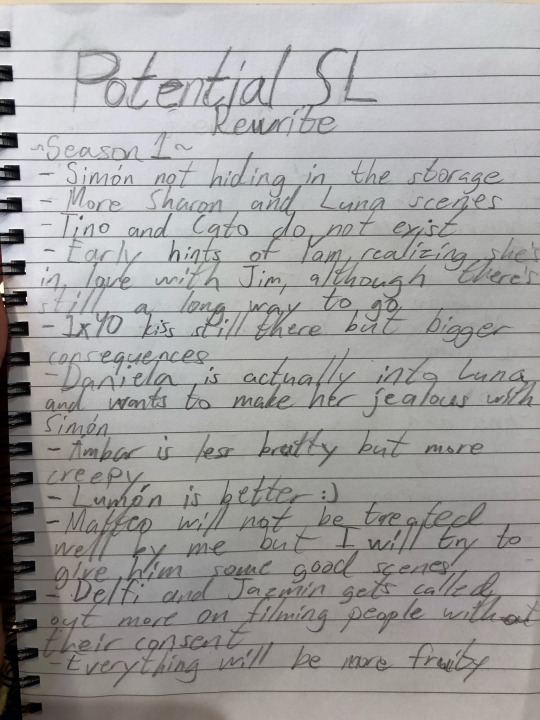 Potential SL
Rewrite
~Season 1~
- Simón not hiding in the storage
- More Sharon and Luna scenes
- Tino and Cato do not exist
- Early hints of Yam realizing she's
in love with Jim, although there's
still a long way to go
- 1x40 kiss still there but bigger
consequences
- Daniela is actually into Luna
and wants to make her jealous with
Simón
- Ámbar is less bratty but more
creepy
- Lumón is better :)
- Matteo will not be treated
well by me but I will try to
give him some good scenes
- Delfi and Jazmin gets called
out more on filming people without
their consent
- Everything will be more fruity